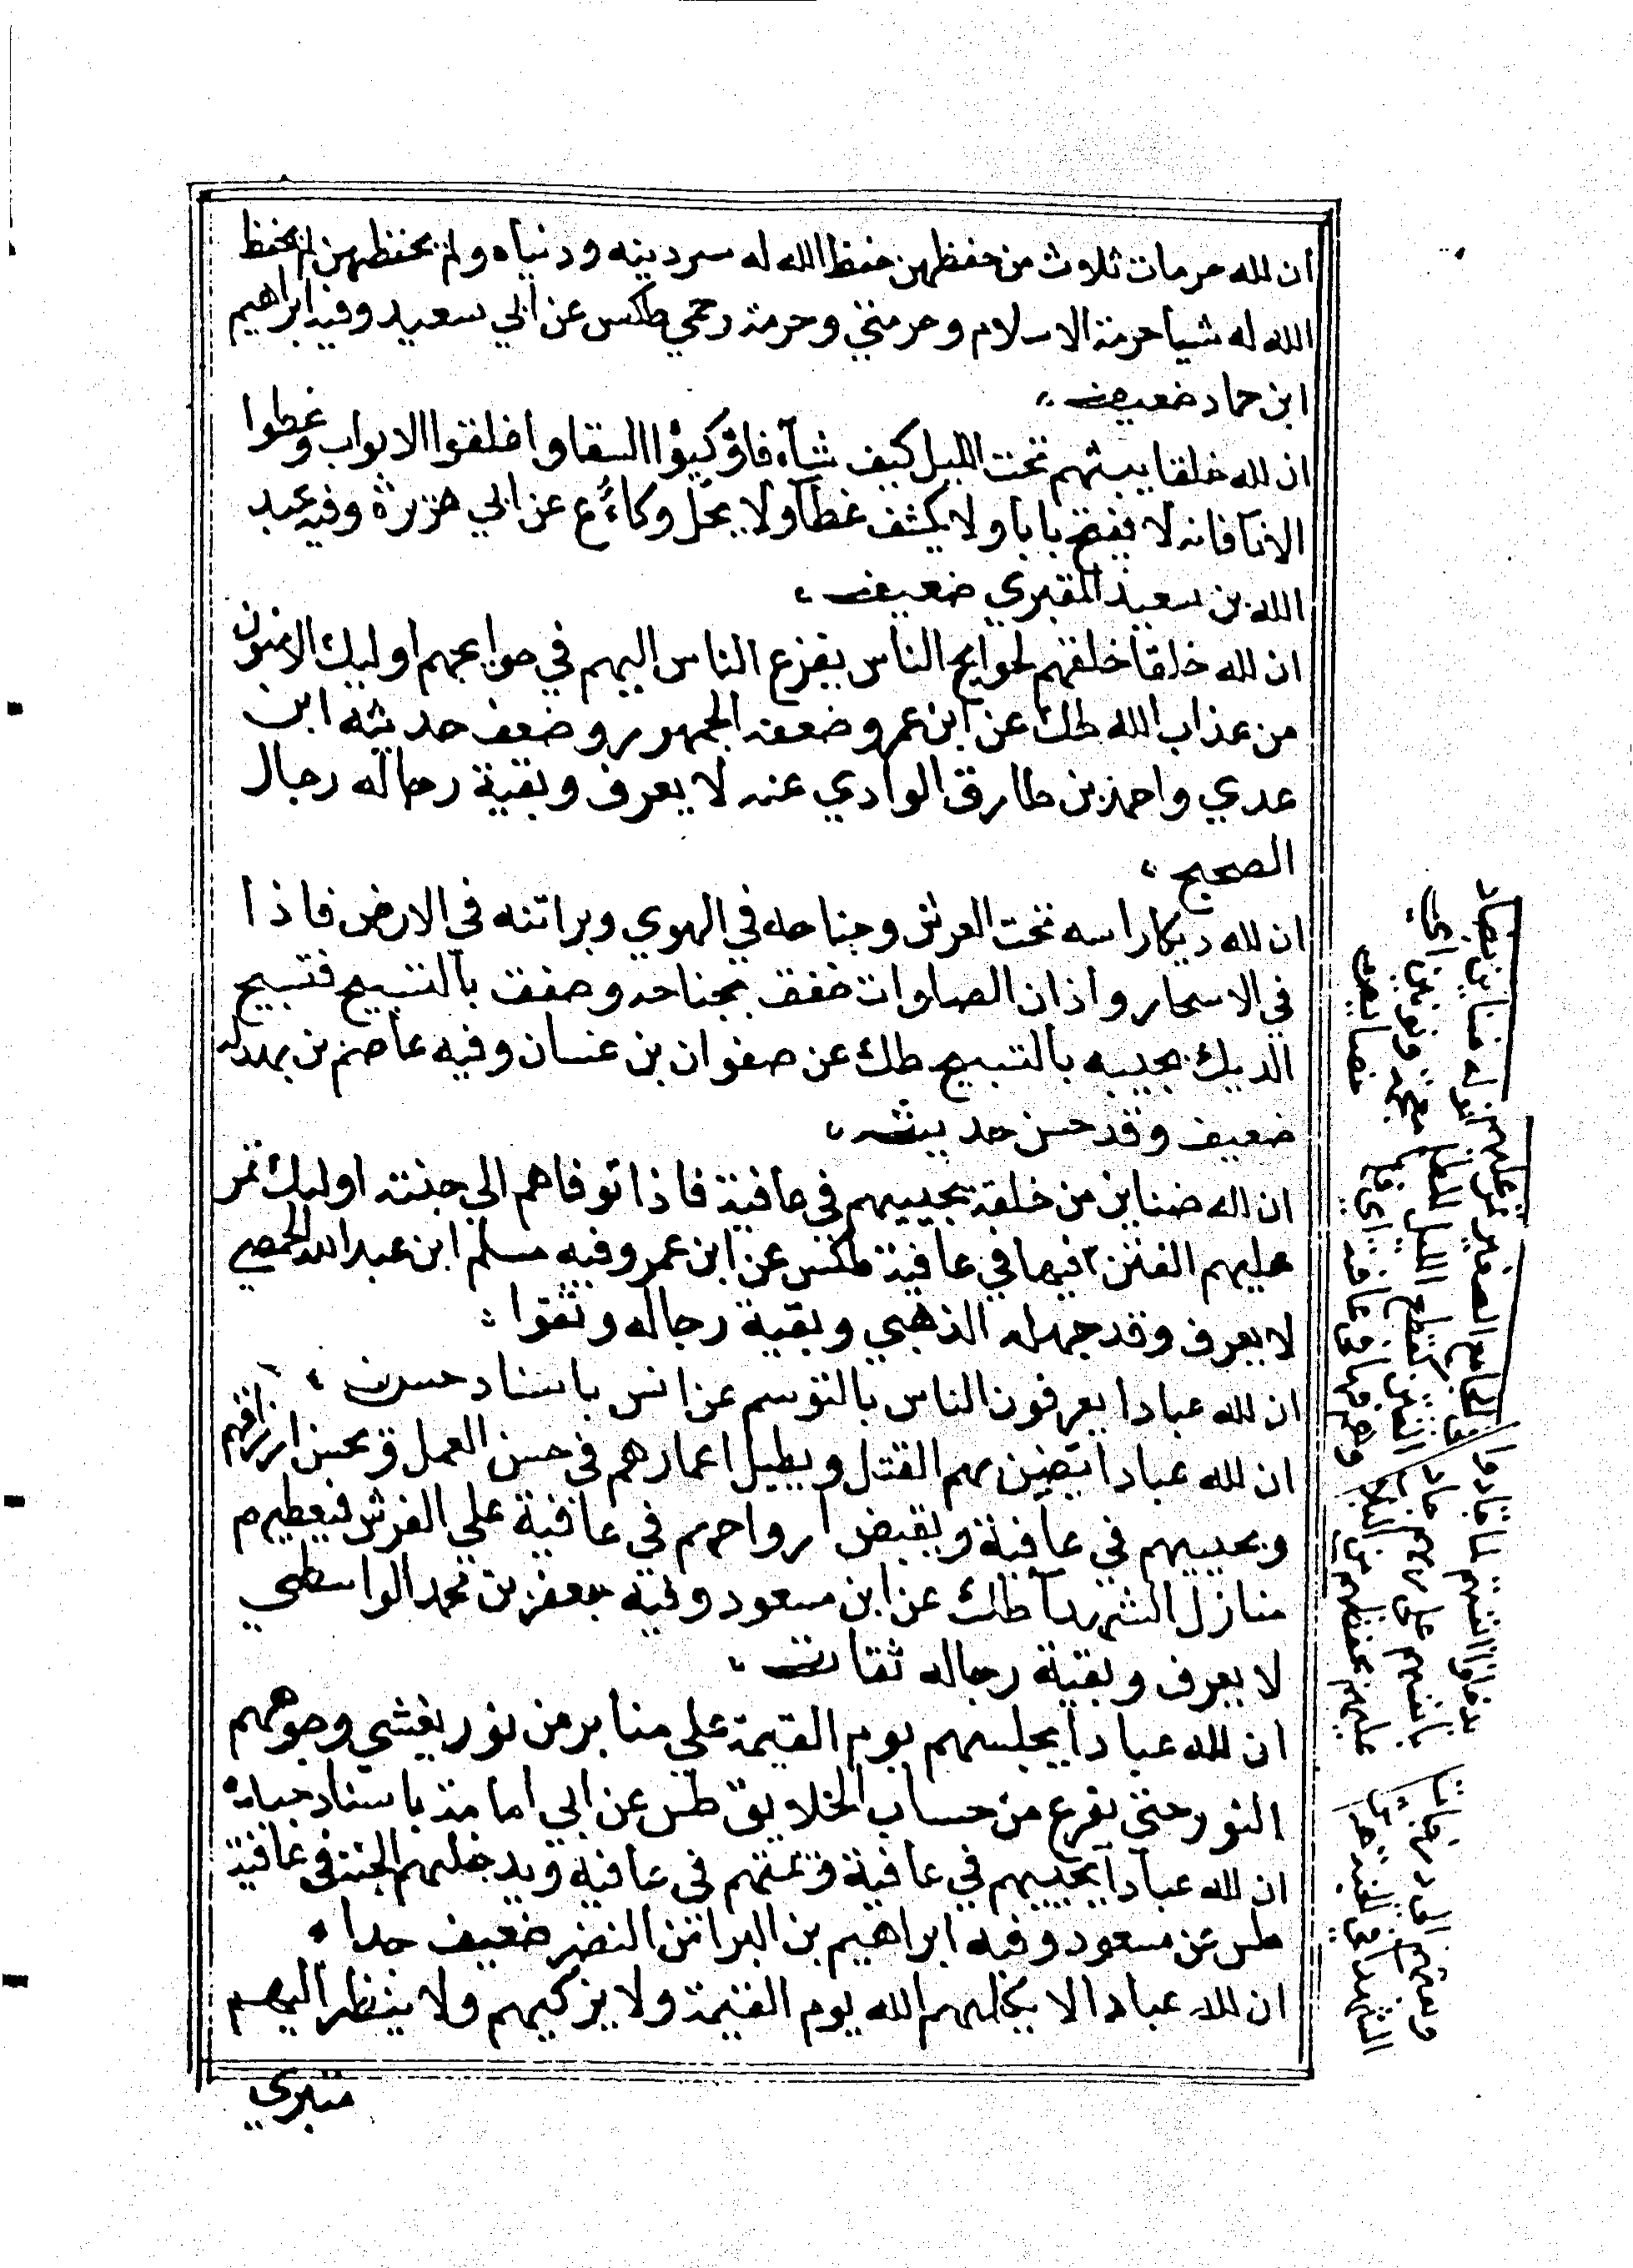 ان لله حرمات ثلاوث من حفظهن حفظ الله له سر دينه ودنياه ولم يحفظهن لم يحفظ
الله له شيا حرمة الاسلام وحرمتي وحرمة رحمي طكس عن ابي سعيد وفيه ابراهيم
ابن حماد ضعيف
ان لله خلقا يبثهم تحت الليل كيف شآء فاؤكيؤا السقا واغلقوا الابواب وغطوا
الانآ فانه لا يفتح بابا ولا يكشف غطآ ولا يحل وكاء ع عن ابي هريرة وفيه عبد
الله بن سعيد المقبري ضعيف
ان لله خلقا خلقهم لحوايج الناس يفزع الناس اليهم في حوايجهم اوليك الامنون
من عذاب الله طك عن ابن عمر وضعفه الجمهور وضعف حديثه ابن
عدي واحمد بن طارق الوادي عنه لا يعرف وبقية رجاله رجال
الصحيح
ان لله ديكا راسه تحت العرش وجناحه في الهوي وبراثنه في الارض فاذا
في الاسحار واذان الصلوات خفق بجناحه وصفق بالتسبيح فتسبح
الديك بجيبه بالتسبيح طك عن صفوان بن غسان وفيه عاصم بن بهدله
ضعيف وقد حسن حديثه
ان لله ضناين من خلقه يحييهم في عافية فاذا توفاهم الي جنته اوليك تمر
عليهم الفتن فيها في عافية طكس عن ابن عمر وفيه مسلم ابن عبد الله الحمصي
لا يعرف وقد جهله الذهبي وبقية رجاله وثقوا
ان لله عبادا يعرفون الناس بالتوسم عن انس باسناد حسن
ان لله عبادا يضن بهم القتل ويطيل اعمارهم في حسن العمل ويحسن ارزاقهم
ويحييهم في عافية ويقبض ارواحهم في عافية علي الفرش فيعطيهم
منازل الشهدآ طك عن ابن مسعود وفيه جعفر بن محمد الواسطي
لا يعرف وبقية رجاله ثقات
ان لله عبادا يجلسهم يوم القيمة علي منابر من نور يغشي وجوههم
النور حتي يفرغ من حساب الخلايق طس عن ابي امامة باسناد جياد
ان لله عبادا يحييهم في عافية ويميتهم في عافية ويدخلهم الجنة في عافية
طس عن مسعود وفيه ابراهيم بن البرا بن النضر ضعيف جدا
ان لله عبادا لا يكلمهم الله يوم القيمة ولا يزكيهم ولا ينظر اليهم
متبري